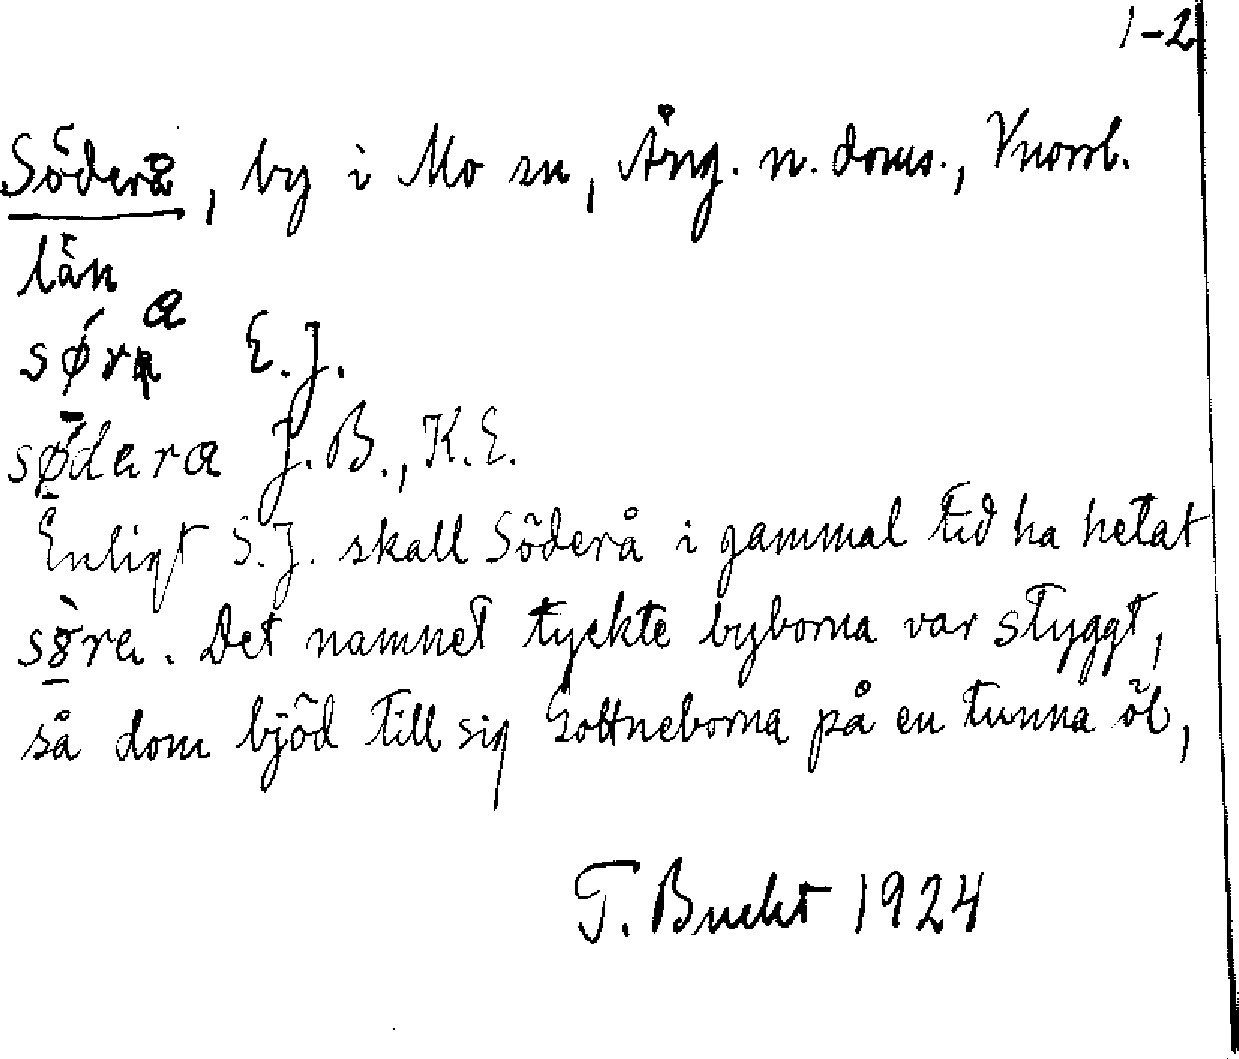 1-2
Söderå, by i Mo sn, Ång. n. doms., Vnorrl.
län
sǿra E.J.
sødera J.B., K.E.
Enligt S.J. skall Söderå i gammal tid ha hetat
Det namnet tyckte byborna var styggt,
så dom bjöd till sig Gottneborna på en tunna öl,
T. Bucht 1924